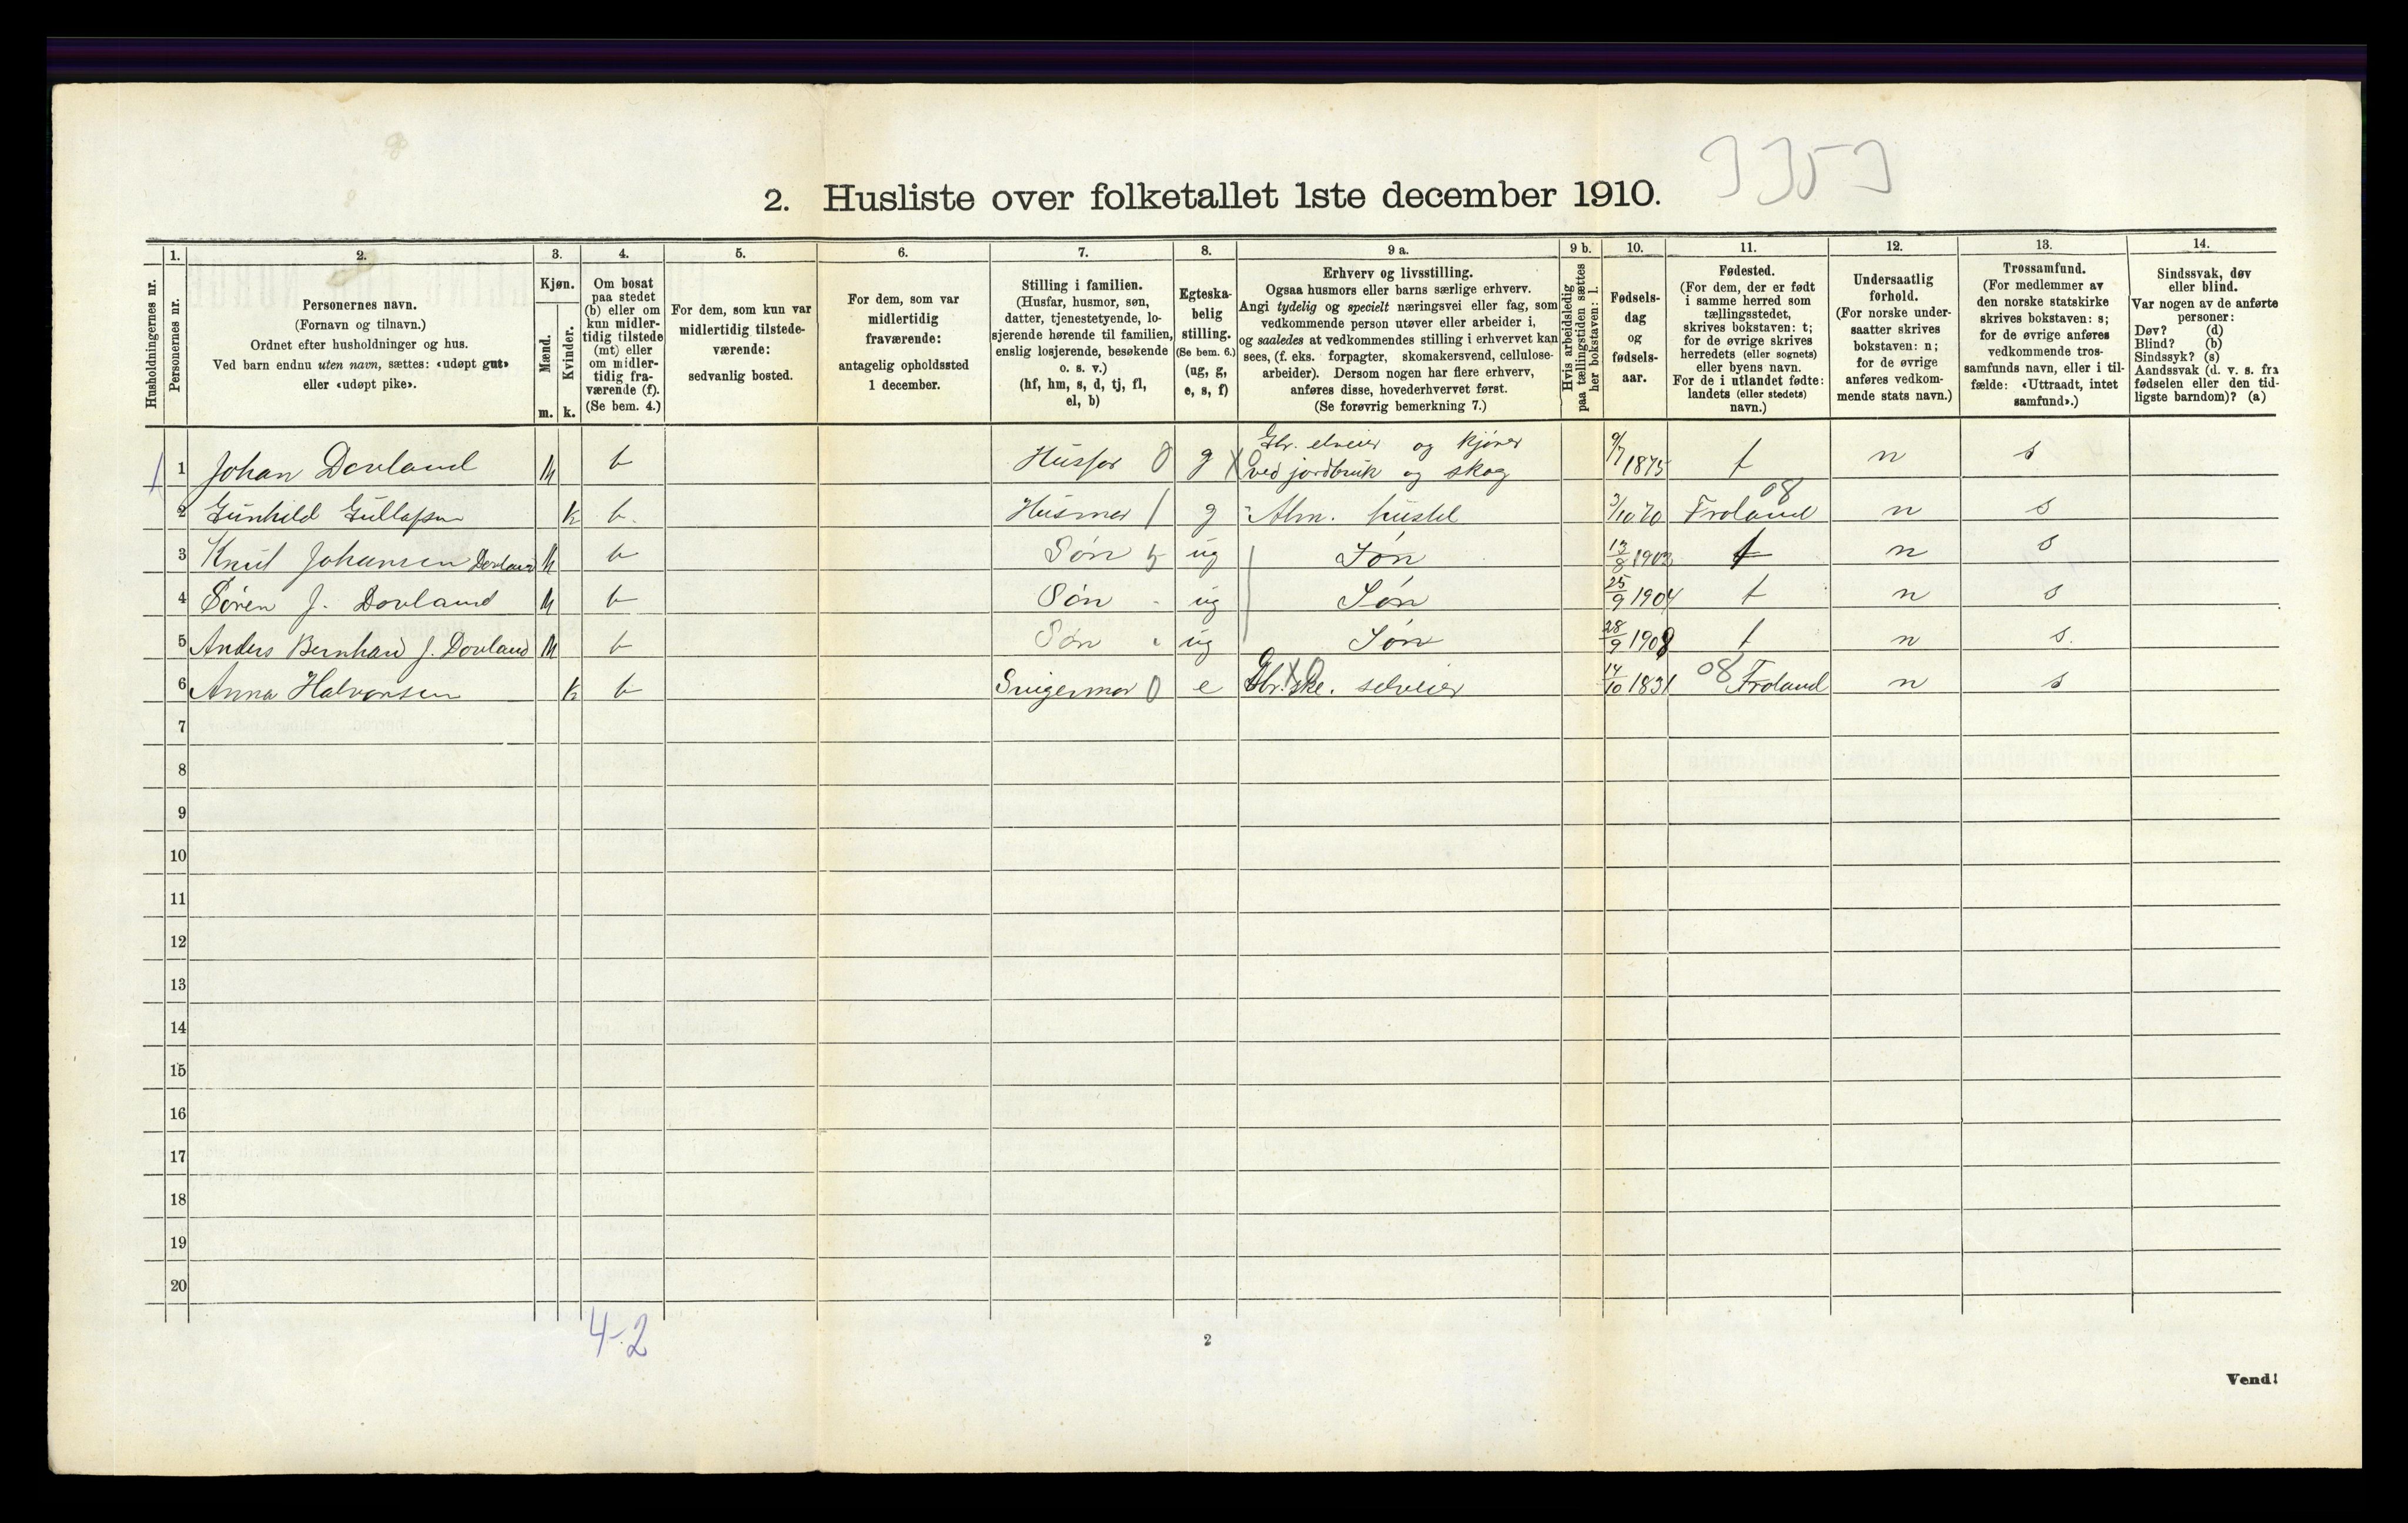 3353
2. Husliste over folketallet 1ste december 1910.
Husholdningernes nr.
1.
Personernes nr.
2.
Personernes navn.
(Fornavn og tilnavn.)
Ordnet efter husholdninger og hus.
Ved barn endnu uten navn, sættes: «udøpt gut»
eller «udøpt pike».
3.
Kjøn.
Mænd.
m.
Kvinder.
k.
4.
Om bosat
paa stedet
(b) eller om
kun midler-
tidig tilstede
(mt) eller
om midler-
tidig fra-
værende (f).
(Se bem. 4.)
5.
For dem, som kun var
midlertidig tilstede-
værende:
sedvanlig bosted.
6.
For dem, som var
midlertidig
fraværende:
antagelig opholdssted
1 december.
7.
Stilling i familien.
(Husfar, husmor, søn,
datter, tjenestetyende, lo-
sjerende hørende til familien,
enslig losjerende, besøkende
o. s. v.)
(hf, hm, s, d, tj, fl,
el, b)
8.
Egteska-
belig
stilling.
(Se bem. 6.)
(ug, g,
e, s, f)
9 a.
Erhverv og livsstilling.
Ogsaa husmors eller barns særlige erhverv.
Angi tydelig og specielt næringsvei eller fag, som
vedkommende person utøver eller arbeider i,
og saaledes at vedkommendes stilling i erhvervet kan
sees, (f. eks. forpagter, skomakersvend, cellulose-
arbeider). Dersom nogen har flere erhverv,
anføres disse, hovederhvervet først.
(Se forøvrig bemerkning 7.)
9 b.
Hvis arbeidsledig
paa tællingstiden sættes
her bokstaven: l.
10.
Fødsels-
dag
og
fødsels-
aar.
11.
Fødested.
(For dem, der er født
i samme herred som
tællingsstedet,
skrives bokstaven: t;
for de øvrige skrives
herredets (eller sognets)
eller byens navn.
For de i utlandet fødte:
landets (eller stedets)
navn.)
12.
Undersaatlig
forhold.
(For norske under-
saatter skrives
bokstaven: n;
for de øvrige
anføres vedkom-
mende stats navn.)
13.
Trossamfund.
(For medlemmer av
den norske statskirke
skrives bokstaven: s;
for de øvrige anføres
vedkommende tros-
samfunds navn, eller i til-
fælde: «Uttraadt, intet
samfund».)
14.
Sindssvak, døv
eller blind.
Var nogen av de anførte
personer:
Døv? (d)
Blind? (b)
Sindssyk? (s)
Aandssvak (d. v. s. fra
fødselen eller den tid-
ligste barndom)? (a)
1 Johan Dovland M b Husfar 0 g X Gbr. elveier og kjører ved jordbruk og skog 9/7 1875 t n s
2 Gunhild Gullafsen K b. Husmor / g Alm. hustel 3/10 70 Froland 08 n s
3 Knut Johansen Dovland M b Søn 5 ug Søn 13/8 1902 t n s
4 Søren J. Dovland M b Søn - ug Søn 25/9 1904 t n s
5 Anders Bernhard J. Dovland M b Søn ug Søn 28/9 1908 t n s.
6 Anna Halvorsen K b Svigermor 0 e selveier 14/10 1831 08 Froland n s
7
8
9
10
11
12
13
14
15
16
17
18
19
20
4-2
2
Vend!